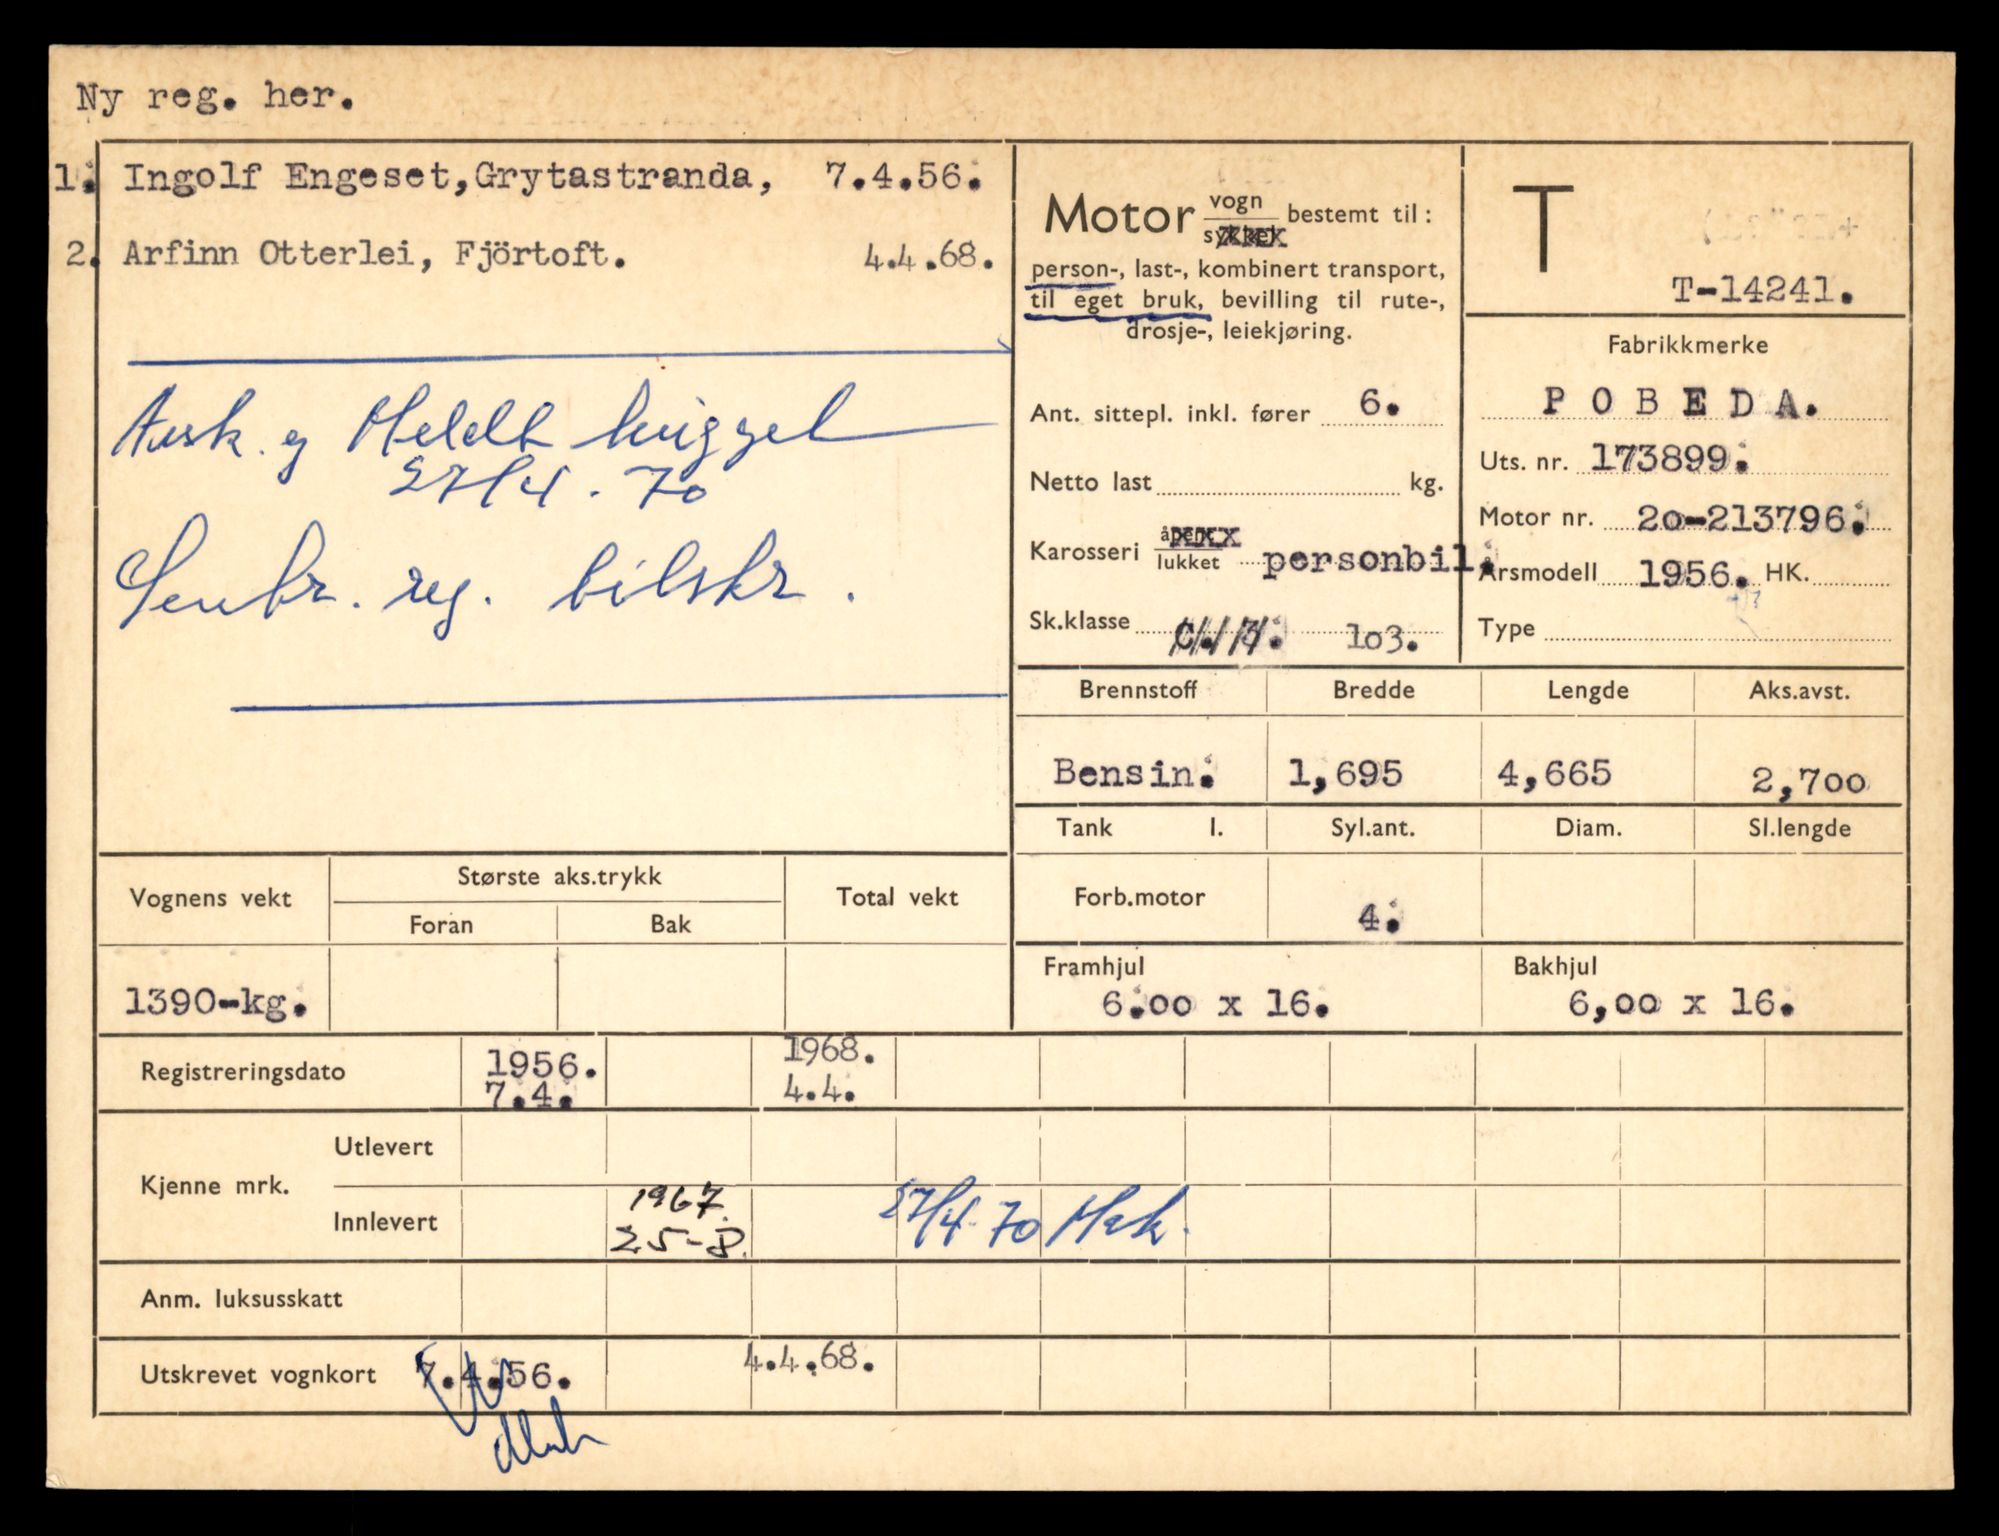 Ny reg. her.
1. Ingolf Engeset, Grytastranda, 7.4.56.
2. Arfinn Otterlei, Fjörtoft. 4.4.68.
Avsk. og Meldt hugget
27/4-70
Senbr. reg. bilskr.
Motor vogn bestemt til:
person-, last-, kombinert transport,
til eget bruk, bevilling til rute-,
drosje-, leiekjøring.
Ant. sittepl. inkl. fører 6.
Netto last kg.
Karosseri åpent lukket personbil.
Sk.klasse 1o3.
T
T-14241.
Fabrikkmerke
POBEDA.
Uts. nr. 173899.
Motor nr. 2o-213796.
Årsmodell 1956. HK.
Type
Brennstoff Bredde Lengde Aks.avst.
Bensin. 1,695 4,665 2,7oo
Tank l. Syl.ant. Diam. Sl.lengde
Forb.motor 4.
Framhjul Bakhjul
6.oo x 16. 6,oo x 16.
Vognens vekt Største aks.trykk Total vekt
Foran Bak
1390-kg.
Registreringsdato 1956. 1968.
7.4. 4.4.
Kjenne mrk. Utlevert
Innlevert 1967. 27/4-70
25-8.
Anm. luksusskatt
Utskrevet vognkort 7.4.56. 4.4.68.